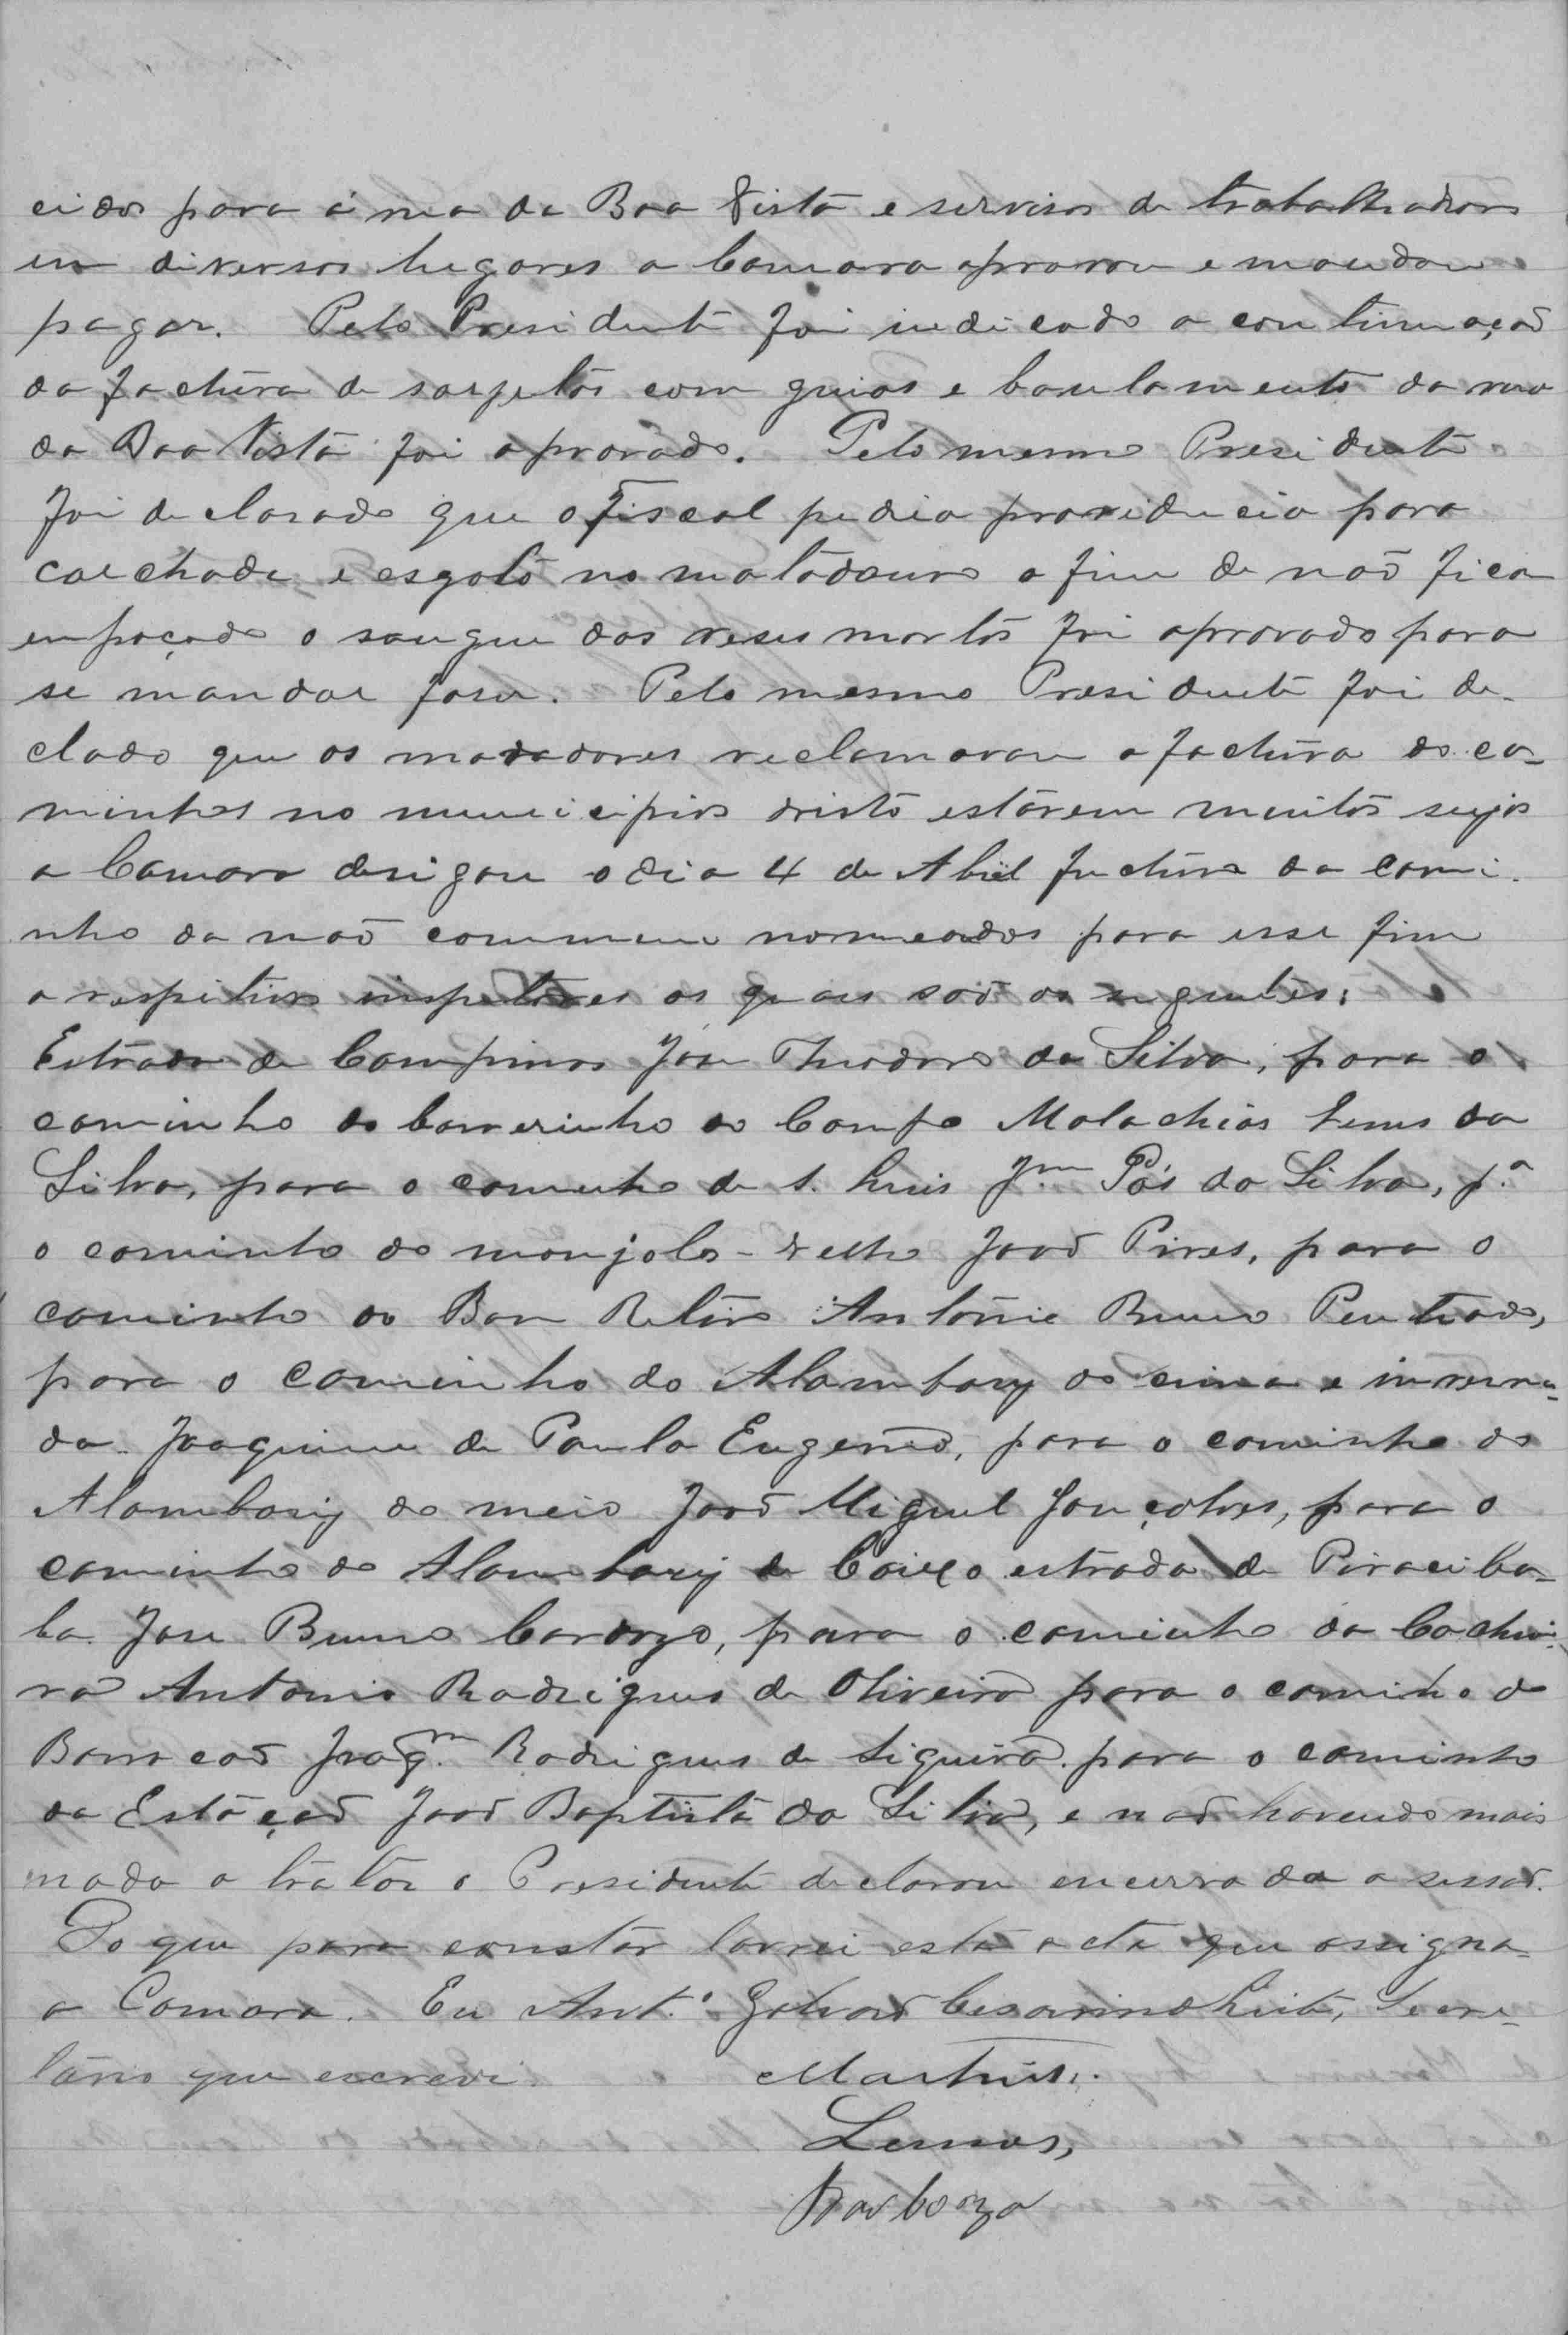 cidos para á rua da Boa Vista e servisos de trabalhadores
em diversos lugares a Camara aprovou e mandou
pagar. Pelo Presidente foi indicado a continuaçaõ
da factura de sargetas com guias e baulamento da rua
da Boa Vista foi aprovado. Pelo mesmo Presidente
foi declarado que o fiscal pedia providencia para
calchada e esgoto no matadouro a fim de naõ fica
empoçado o sangue das reses mortas foi aprovado para
se mandar faser. Pelo mesmo Presidente foi de-
clado que os moradores reclamavam a factura do ca-
minhos no municipios visto estarem muitos sujos
a Camara desigou o dia 4 de Abril factura da cami-
nho da maõ commum nomeados para esse fim
a respetivos inspetores os quais saõ os seguintes:
Estrada de Campinas José Theodoro da Silva, para o
caminho do barrerinho do Campo Malachias Lemes da
Silva, para o caminho de S. Luis Jm Pás da Silva, p.a
o caminho do monjolo-velho Joaõ Pires, para o
caminho do Bom Retiro Antonio Bueno Penteado,
para o caminho do Alambary de cima e inverna-
da Joaquim de Paula Eugenio, para o caminho do
Alambary do meio Joaõ Miguel Gonçalves, para o
caminho do Alambary de baixo estrada de Piracica-
ba José Bueno Cardozo, para o caminho da Cachoei-
ra Antonio Rodrigues de Oliveira para o caminho do
Barrocaõ Joaq.m Rodrigues de Siqueira para o caminho
da Estaçaõ Joaõ Baptista da Silva, e naõ havendo mais
nada a tratar o Presidente declarou encerrada a sessaõ.
Do que para constar lavrei esta acta que assigna
a Camara. Eu Ant.o Galvaõ Cesarino Leite, Secre-
tario que escrevi. Martins.
Lemos,
Barboza